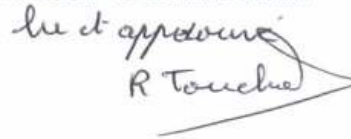 lu et approuvé
R Touche